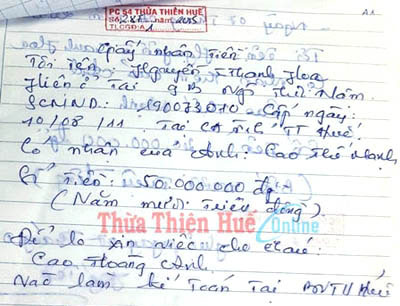 PC 54 THỪA THIÊN HUẾ
năm 2015
TLGĐ: A1
A1
Giấy nhận tiền
Tôi tên Nguyễn Thanh Hoa
Hiện ở Tại 9B Ngô Thế Lân
SCMND: 190073010 Cấp ngày:
10/08/11. Tại CA Tỉnh TT Huế.
Có nhận của Anh: Cao Thế Mạnh
Số Tiền: 50.000.000 đg
(Năm mươi Triệu đồng).
Thừa Thiên Huế Online
Để lo xin việc cho cháu:
Cao Hoàng Anh
Vào làm kế Toán Tại BVTU Huế